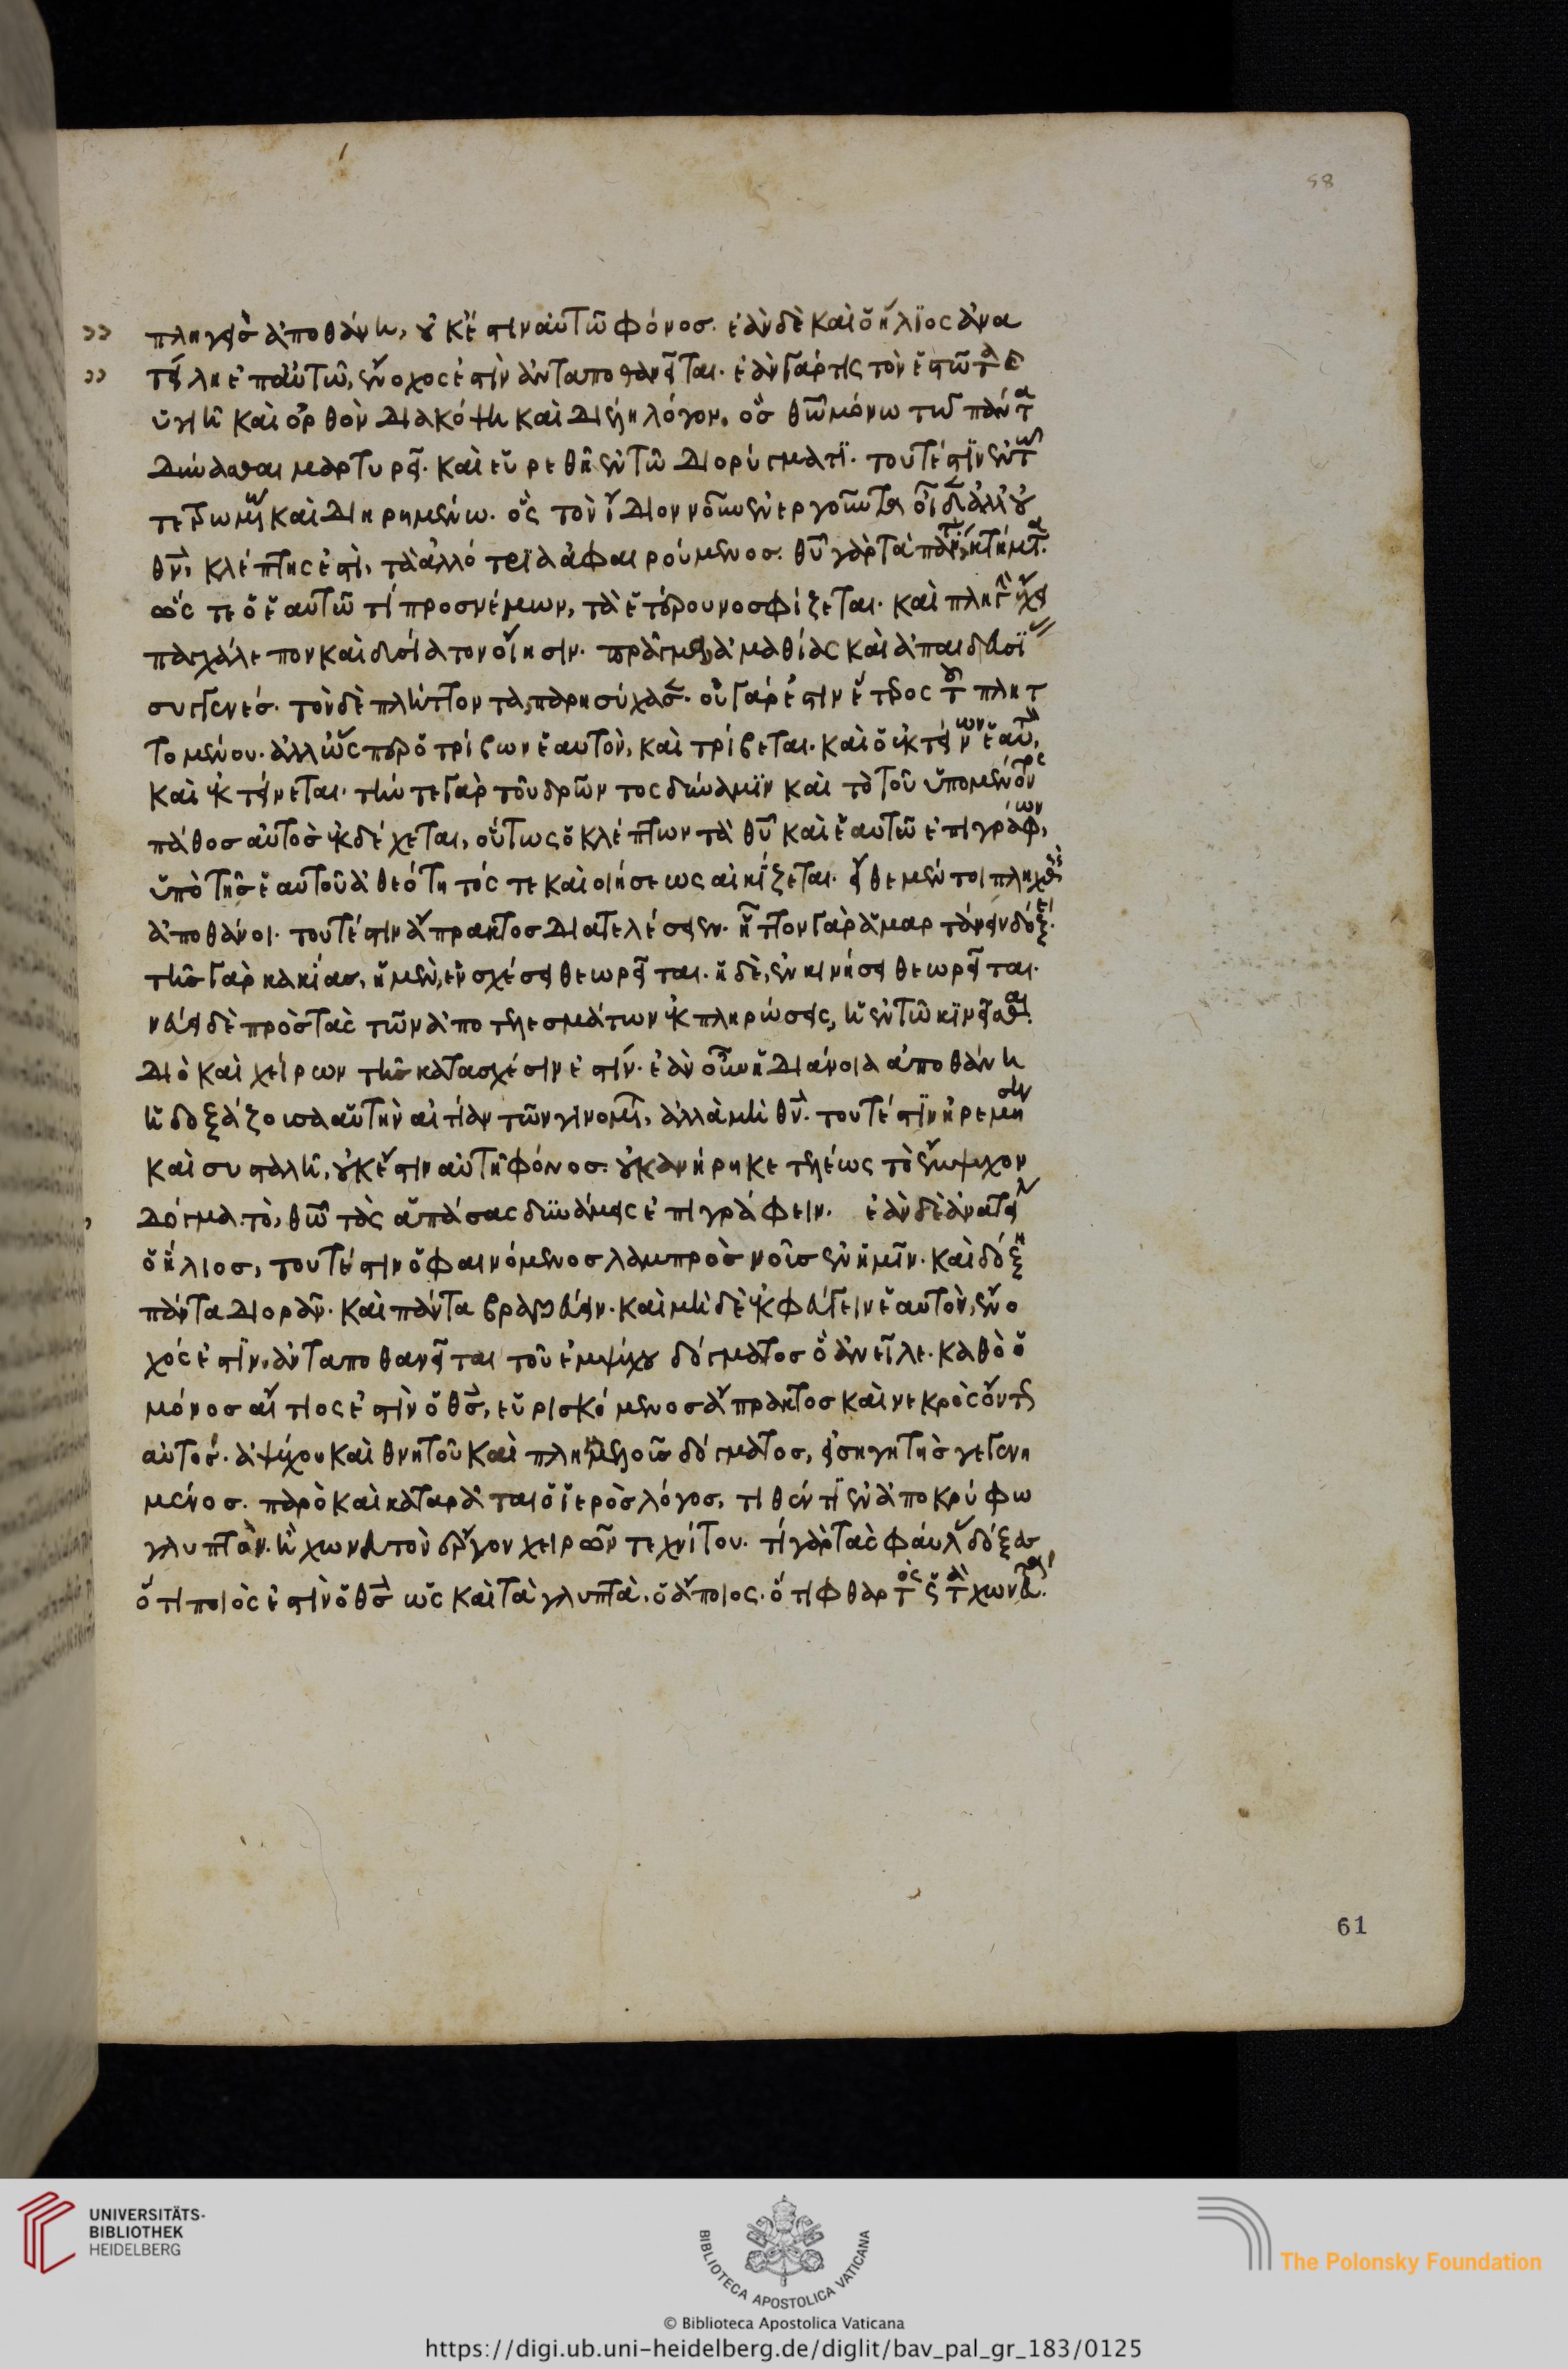 58
πληγεὶς ἀποθάνῃ, οὐκ ἔστιν αὐτῶ φόνος. ἐὰν δὲ καὶ ὁ ἥλϊος ἀνα
τείλη ἐπ' αὐτῶ, ἔνοχος ἐστὶν ἀνταποθανεῖται. ἐὰν γάρ τις τὸν ἑστῶτα
ὑγιῆ καὶ ὀρθὸν διακόψῃ καὶ διέλη λόγον, ὃς θῶ μόνω τῶ πάντα
δύνασθαι μαρτυρεῖ. καὶ εὑρεθῆ ἐν τῶ διορύγματϊ. τουτέστιν ἐν τῶ
τετρωμένω καὶ διηρημένω. ὃς τὸν ἴδιον νοῦν ἐνεργοῦντα οἶδεν ἀλλ' οὐ
θν, κλέπτης ἐστὶ, τὰ ἀλλότρϊα ἀφαιρούμενος. θυ γὰρ τὰ πάντα κτήματα.
ὥστε ὁ ἑαυτῶ τί προσνέμων, τὰ ἑτέρου νοσφίζεται. καὶ πληγὴν ἔχει
παγχάλεπον καὶ δυσίατον οἴησιν. πρᾶγμα ἀμαθίας καὶ ἀπαιδευσί
συγγενές. τὸν δὲ πλήττοντα παρησύχασεν. οὐ γάρ ἐστιν ἕτερος τοῦ πλητ
τομένου. ἀλλ' ὥσπερ ὁ τρίβων ἑαυτὸν, καὶ τρίβεται. καὶ ὁ ἐκτείνων ἑαυτὸν,
καὶ ἐκτείνεται. τήν τε γὰρ τοῦ δρῶντος δύναμϊν καὶ τὸ τοῦ ὑπομένοντος
πάθος αὐτὸς ἐκδέχεται, οὕτως ὁ κλέπτων τὰ θυ καὶ ἑαυτῶ ἐπιγράφων,
ὑπὸ τῆς ἑαυτοῦ ἀθεότητός τε καὶ οἰήσεως αἰκίζεται. εἴθε μέντοι πληγεὶς
ἀποθάνοι. τουτέστιν ἄπρακτος διατελέσειεν. ἧττον γὰρ ἁμαρτάνειν δόξει.
τῆς γὰρ κακίας, ἡ μὲν, ἐν σχέσει θεωρεῖται. ἡ δὲ, ἐν κινήσει θεωρεῖται.
νεύει δὲ πρὸς τὰς τῶν ἀποτελεσμάτων ἐκπληρώσεις, ἡ ἐν τῶ κϊνεῖσθαι.
διὸ καὶ χείρων τῆς κατὰ σχέσιν ἐστίν. ἐὰν οὖν ἡ διάνοια ἀποθάνῃ
ἡ δοξάζουσα αὑτὴν αἰτίαν τῶν γινομένων, ἀλλὰ μὴ θν. τουτέστϊν ἠρεμήσῃ
καὶ συσταλῇ, οὐκ ἔστιν αὐτῆ φόνος. οὐκ ἀνήρηκε τελέως τὸ ἔμψυχον
δόγμα. τὸ, θῶ τὰς ἁπάσας δυνάμεις ἐπιγράφειν. ἐὰν δὲ ἀνατείλῃ
ὁ ἥλιος, τουτέστιν ὁ φαινόμενος λαμπρὸς νοῦς ἐν ἡμῖν. καὶ δόξη
πάντα διορᾶν. καὶ πάντα βραβεύειν. καὶ μηδὲν ἐκφεύγειν ἑαυτὸν, ἔνο
χός ἐστϊν, ἀνταποθανεῖται τοῦ ἐμψύχου δόγματος ὃ ἀνεῖλε. καθὸ ὁ
μόνος αἴτιος ἐστὶν ὁ θς, εὑρισκόμενος ἄπρακτος καὶ νεκρὸς ὄντως
αὐτός. ἀψύχου καὶ θνητοῦ καὶ πλημμελοῦς δόγματος, εἰσηγητὴς γεγενη
μένος. παρὸ καὶ καταρᾶται ὁ ἱερὸς λόγος, τιθέντϊ ἐν ἀποκρύφω
γλυπτὸν. ἢ χωνευτὸν ἔργον χειρῶν τεχνίτου. τί γὰρ τὰς φαύλας δόξας
ὅτι ποιός ἐστὶν ὁ θς ὡς καὶ τὰ γλυπτὰ, ὁ ἄποιος. ὅτι φθαρτὸς ὡς τὰ χωνευτά.
61
UNIVERSITÄTS-
BIBLIOTHEK
HEIDELBERG
BIBLIOTECA APOSTOLICA VATICANA
The Polonsky Foundation
© Biblioteca Apostolica Vaticana
https://digi.ub.uni-heidelberg.de/diglit/bav_pal_gr_183/0125